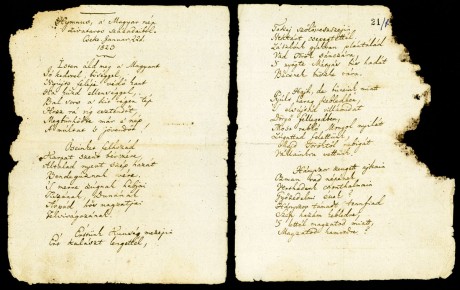 Hymnus, a' Magyar nép
zivataros századaiból.
Cseke, Januar. 22d.
1823
Isten áldd meg a' Magyart
Jó kedvvel, bőséggel,
Nyújts feléje védő kart
Ha küzd ellenséggel;
Bal sors a' kit régen tép
Hozz rá víg esztendőt,
Megbünhödte már e' nép
A' multat 's jövendőt.
Őseinket felhozád
Kárpát szent bérczére,
Általad nyert szép hazát
Bendegúznak vére.
'S merre zúgnak habjai
Tiszának, Dunának,
Árpád hős magzatjai
Felvirágozának.
Értünk Kunság mezejin
Ért kalászt lengettél,
21/
Tokaj szőlővesszejin
Nektárt csepegtettél.
Zászlónk gyakran plántálád
Vad Török sánczára,
'S nyögte Mátyás bús hadát
Bécsnek büszke vára.
Hajh, de bűneink miatt
Gyúlt harag kebledben,
'S elsújtád villámidat
Dörgő fellegedben,
Most rabló Mongol nyilát
Zúgattad felettünk,
Majd Töröktől rabigát
Vállainkra vettünk.
Hányszor zengett ajkain
Ozman vad népének
Vert hadunk csonthalmain
Győzedelmi ének!
Hányszor támadt tenfiad
Szép hazám kebledre,
'S lettél magzatod miatt
Magzatod hamvedre!